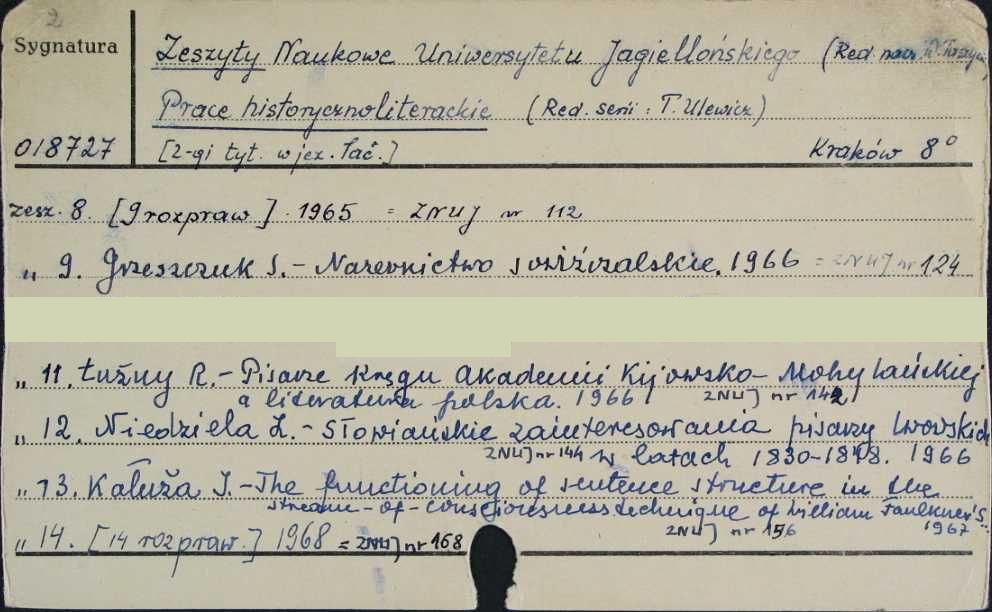 2
Sygnatura
Zeszyty Naukowe Uniwersytetu Jagiellońskiego (Red. nacz.
Prace historycznoliterackie (Red. serii : T. Ulewicz)
018727 [2-gi tyt. w jęz. łac.] Kraków 8°
zesz. 8. [9 rozpraw]. 1965 = ZNUJ nr 112
„ 9. Grzeszczuk S. - Nazewnictwo sowiźrzalskie. 1966 = ZNUJ nr 124
„ 11. Łużny R. - Pisarze kręgu Akademii Kijowsko-Mohylańskiej
a literatura polska. 1966 ZNUJ nr 142
„ 12. Niedziela Z. - Słowiańskie zainteresowania pisarzy lwowskich
ZNUJ nr 144 w latach 1830-1848. 1966
„ 13. Kałuża I. - The functioning of sentence structure in the
stream-of-consciousness technique of William Faulkner's..
ZNUJ nr 156 1967
„ 14. [14 rozpraw.] 1968 = ZNUJ nr 168